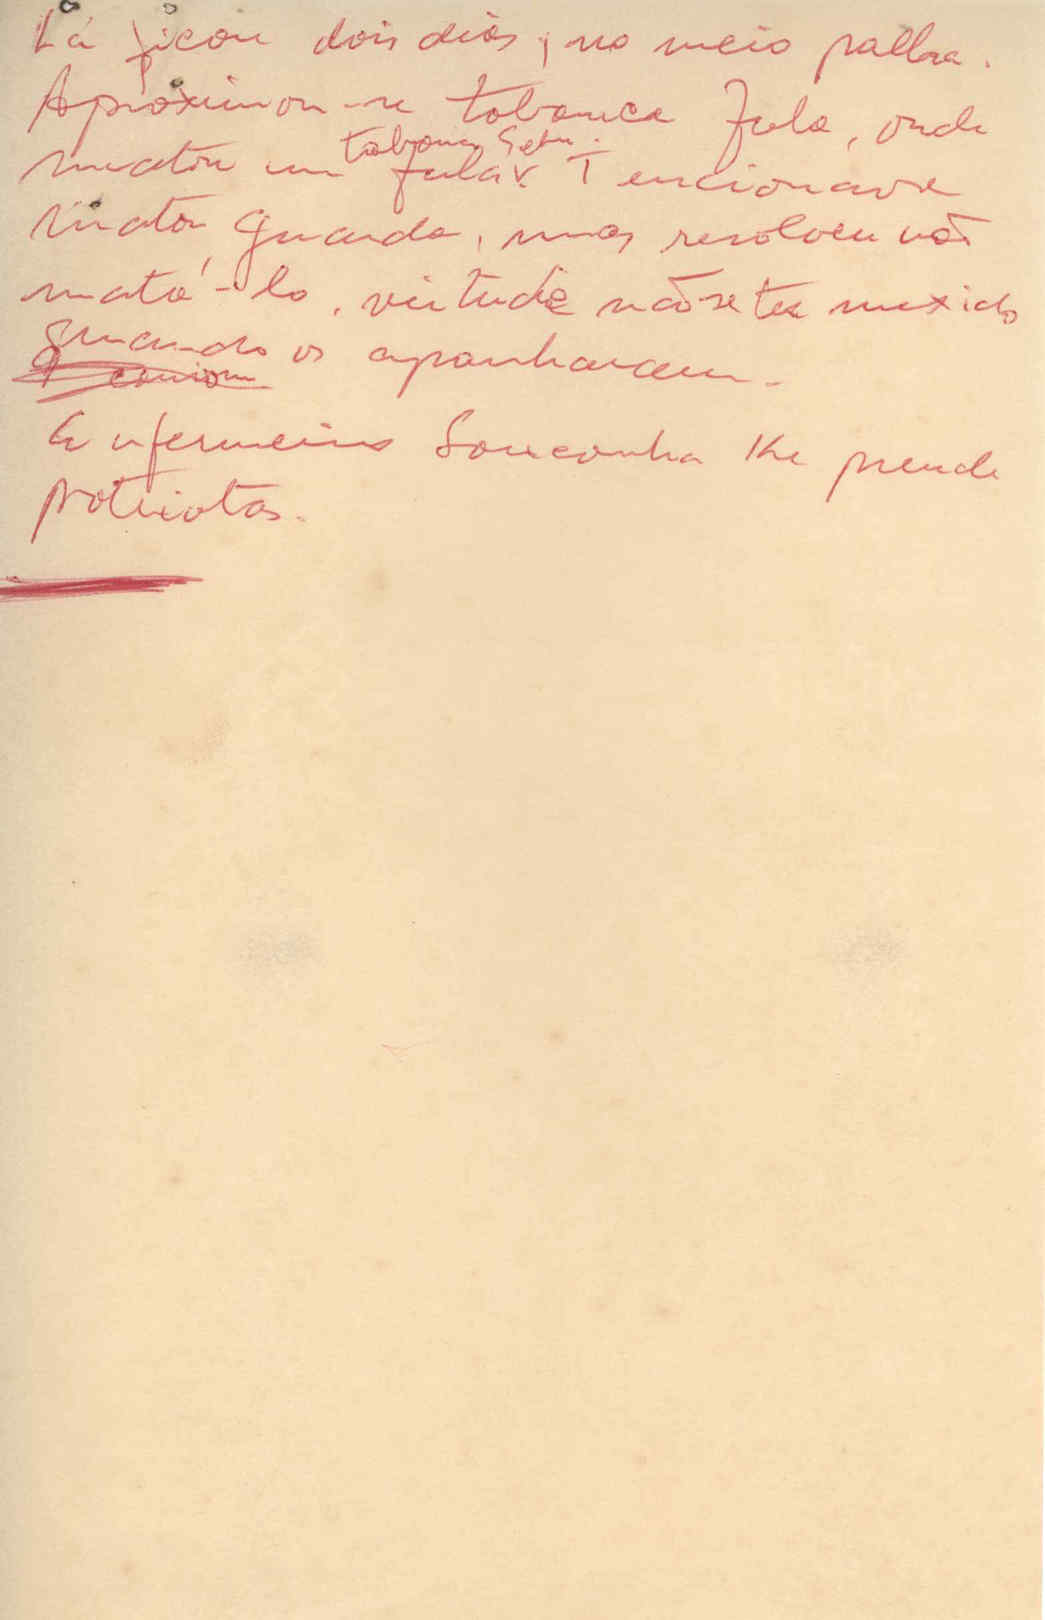 Lá ficou dois dias, no meio palha.
Aproximou-se tabanca Fula, onde
matou um fula. Tencionava
tabanca
matar guarda, mas resolveu não
matá-lo, virtude não se ter mexido
quando os apanharam.
Enfermeiro prende
patriotas.